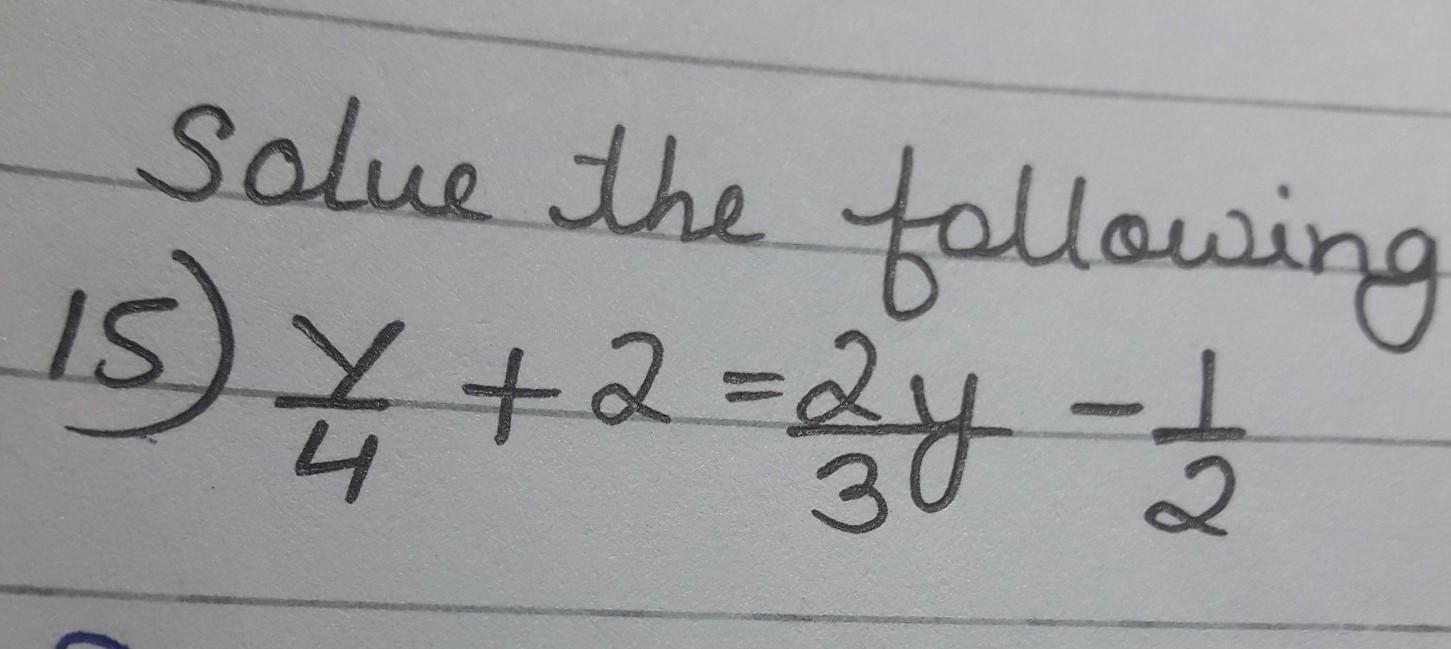 Solve the following
15) y/4 + 2 = 2y/3 - 1/2